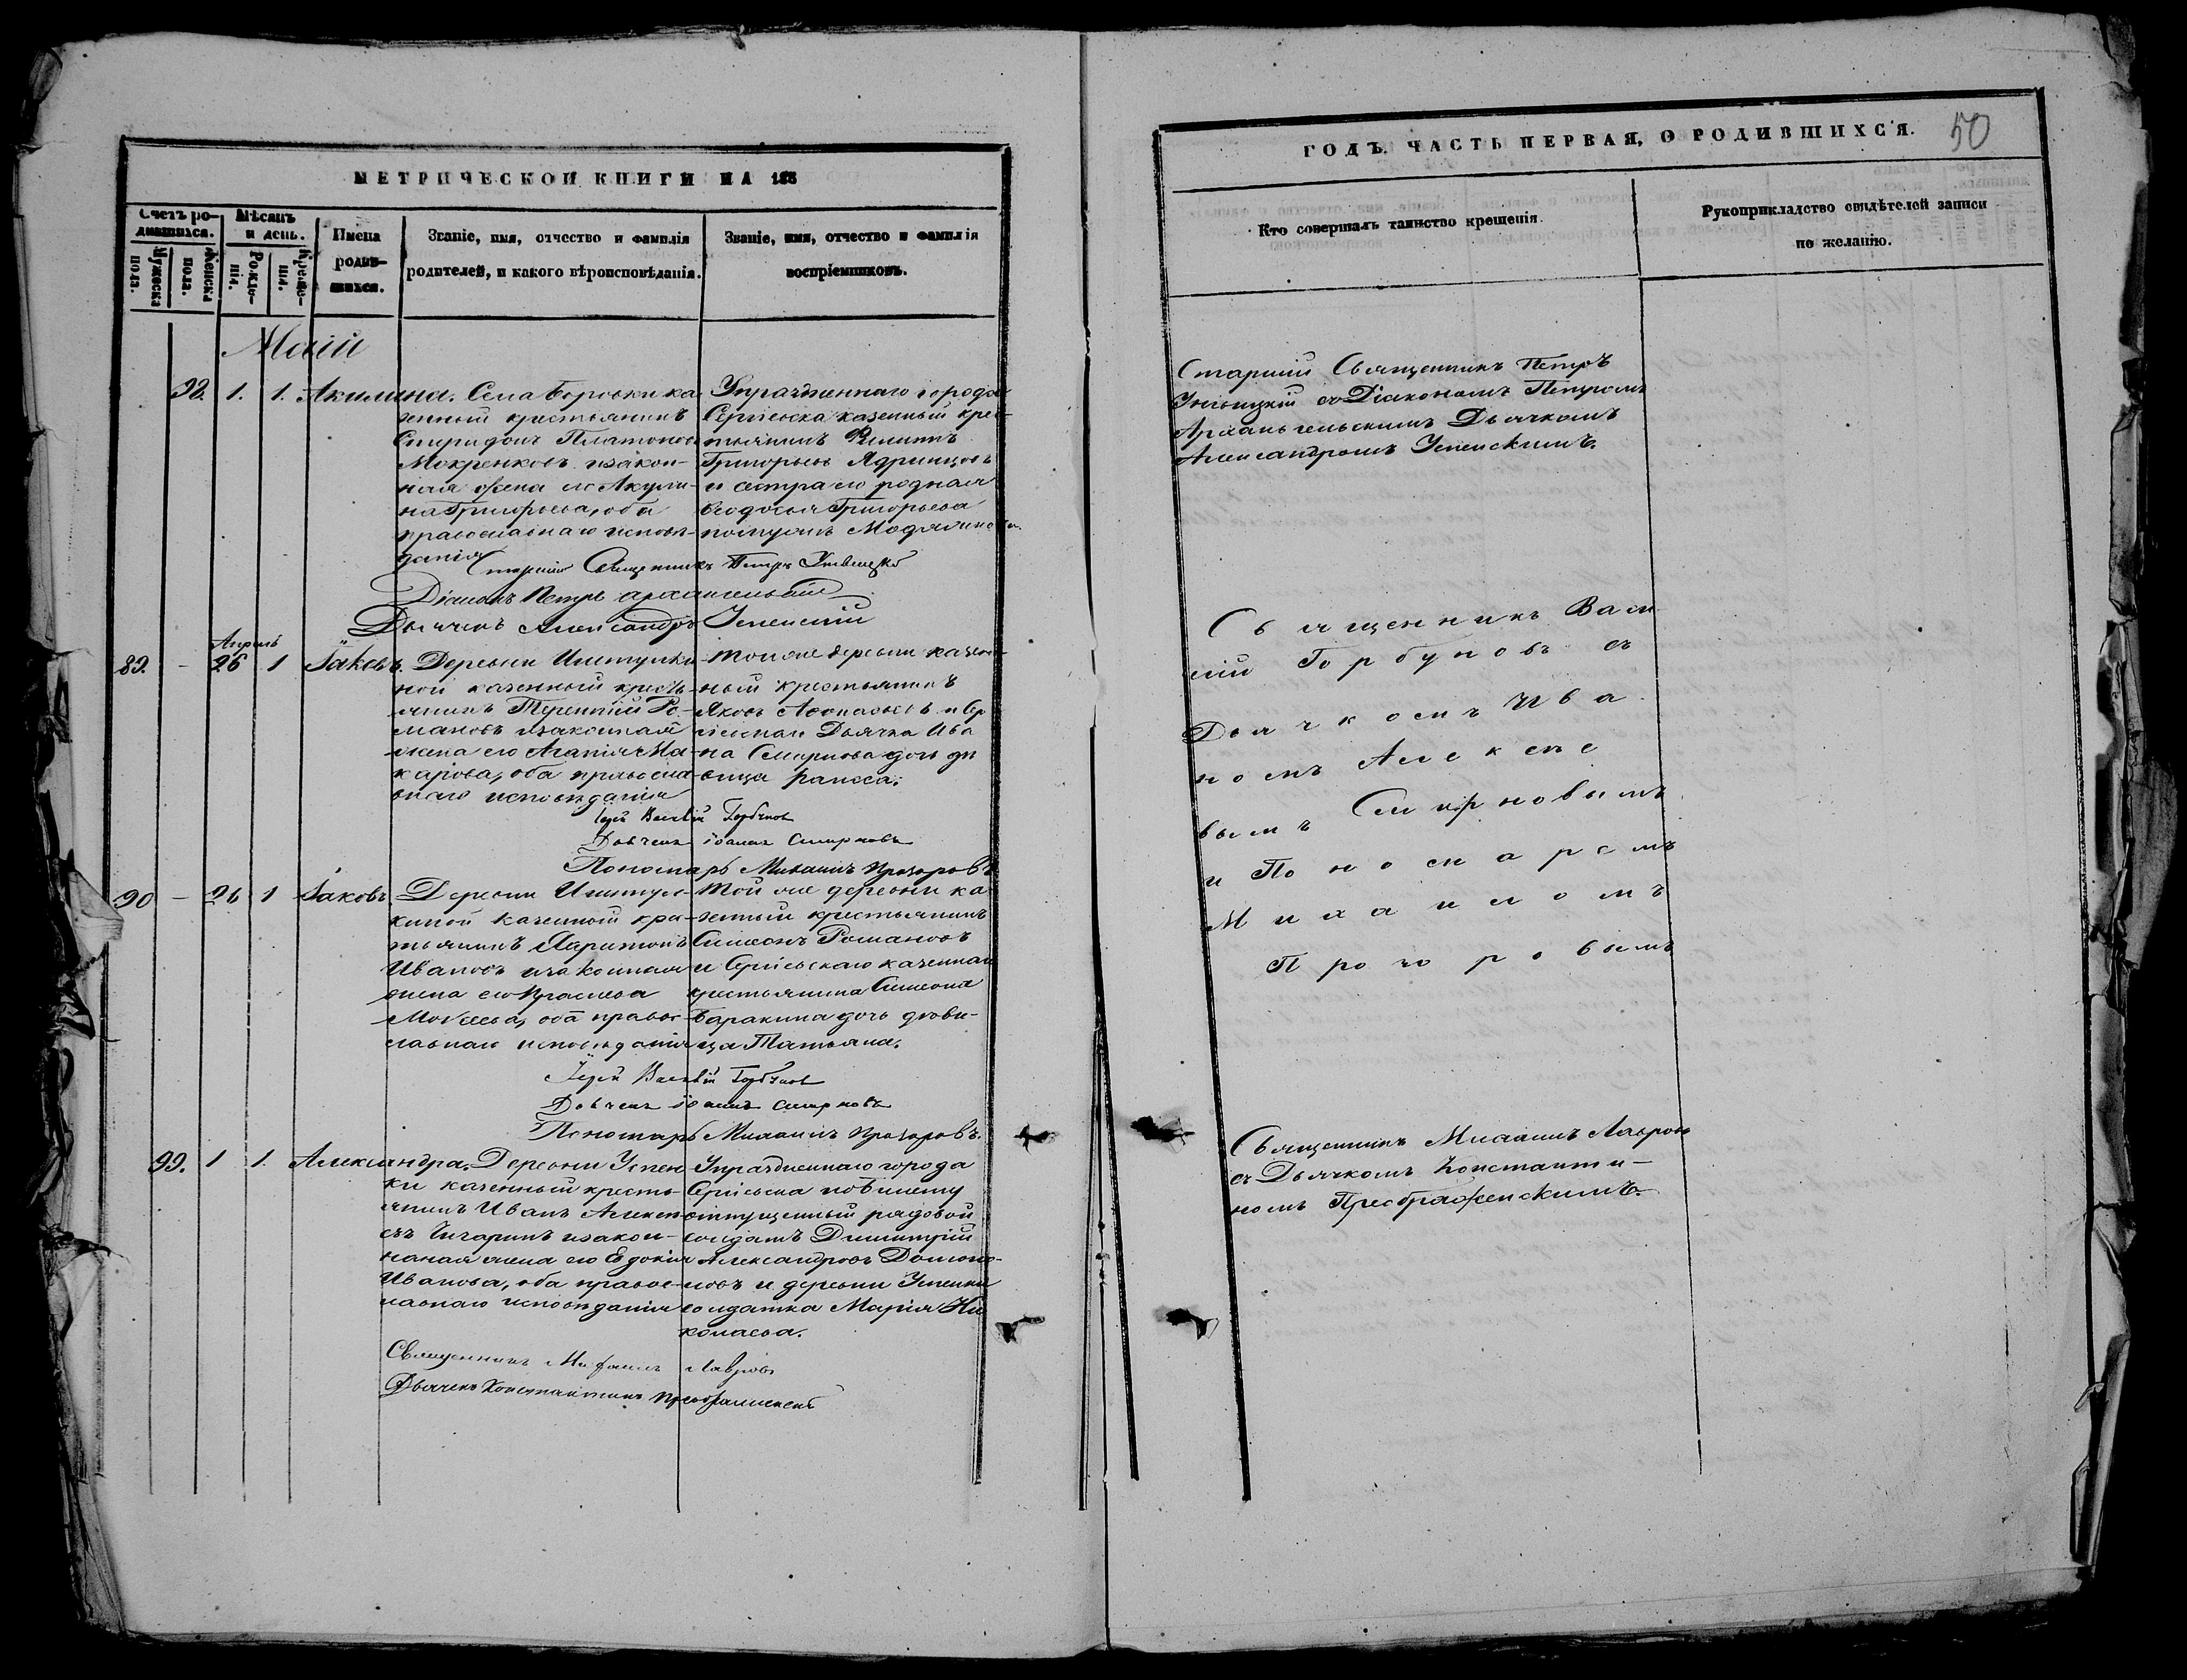 МЕТРИЧЕСКОЙ КНИГИ НА 185
Счетъ ро-
дившихся.
Мѣсяцъ
и день.
Имена
родив-
шихся.
Званіе, имя, отчество и фамилія
родителей, и какого вѣроисповѣданія.
Званіе, имя, отчество и фамилія
воспріемниковъ.
Мужеска
пола.
Женска
пола.
Рожде-
нія.
Креще-
нія.
Маій
98. 1. 1. Акилина.
Села Боровки ка-
зенный крестьянинъ
Спиридонъ Платоновъ
Мокренковъ и закон-
ная жена его Акули-
на Григорьева, оба
православнаго исповѣ-
данія
Упраздненнаго города
Сергіевска казенный крес-
тьянинъ Филиппъ
Григорьевъ Ядринцовъ
и сестра его родная
Ѳеодосья Григорьева
Старшій Священникъ Петръ
Діаконъ Петръ Архангельскій
Дьячекъ Александръ Успенскій
Апрель
89. - 26 1 Іаковъ.
Деревни
ной казенный кресть-
янинъ Терентій Ро-
мановъ и законная
жена его Агапія Ма-
карова, оба правосла-
внаго исповѣданія
Той же деревни казен-
ный крестьянинъ
Яковъ Аѳонасьевъ и Сер-
гіевскаго Дьячка Ива-
на Смирнова дочь дѣ-
вица Раисса.
Іерей Василій Горбуновъ
Дьячекъ Іоаннъ Смирновъ
Пономарь Михаилъ Прозоровъ
90 - 26 1 Іаковъ
Деревни
киной казенный крес-
тьянинъ Харитонъ
Ивановъ и законная
жена его
Моисеева, оба правос-
лавнаго исповѣданія
Той же деревни ка-
зенный крестьянинъ
Симеонъ Романовъ
и Сергіевскаго казеннаго
крестьянина Симеона
Баракина дочь дѣви-
ца Татьяна.
Іерей Василій Горбуновъ
Дьячекъ Іоаннъ Смирновъ
Пономарь Михаилъ Прозоровъ.
99. 1 1. Александра.
Деревни Успен-
ки казенный кресть-
янинъ Иванъ Алексѣ-
евъ Чигаринъ и закон-
ная жена его Евдокія
Иванова, оба правос-
лавнаго исповѣданія
Упраздненнаго города
Сергіевска по билету
отпущенный рядовой
солдатъ Димитрій
Александровъ
и деревни Успенки
солдатка Марія Ни-
колаева.
Священникъ Михаилъ Лавровъ
Дьячекъ Константинъ Преображенскій
ГОДЪ. ЧАСТЬ ПЕРВАЯ, О РОДИВШИХСЯ.
50
Кто совершалъ таинство крещенія.
Рукоприкладство свидѣтелей записи
по желанію.
Старшій Священникъ Петръ
съ Діакономъ Петромъ
Архангельскимъ Дьячкомъ
Александромъ Успенскимъ.
Священникъ Васи
лій Горбуновъ съ
Дьячкомъ Ива
номъ Алексѣе
вымъ Смирновымъ
и Пономаремъ
Михаиломъ
Прозоровымъ
Священникъ Михаилъ Лавровъ
съ Дьячкомъ Константи-
номъ Преображенскимъ.